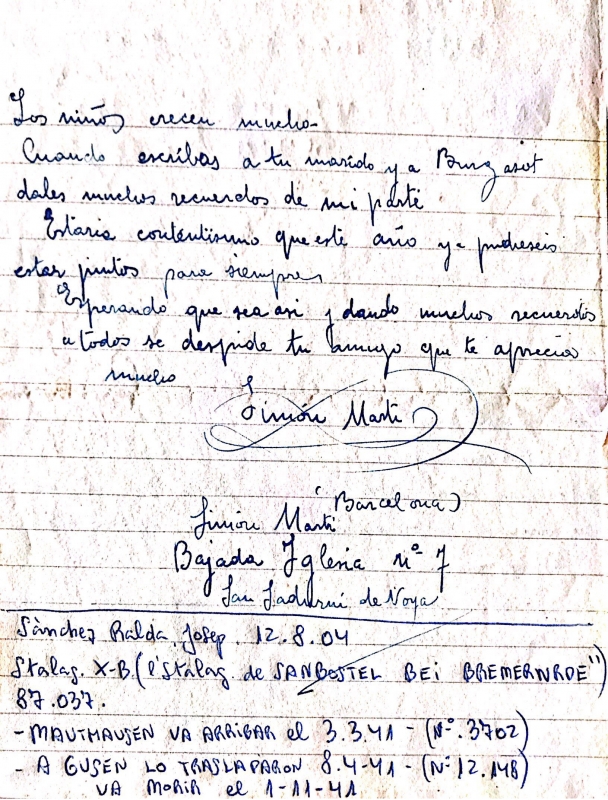 Los niños crecen mucho.
Cuando escribas a tu marido y a Burgasot
dales muchos recuerdos de mi parte.
Estaria contentisimo que este año ya pudieseis
estar juntos para siempre
Esperando que sea asi y dando muchos recuerdos
a todos se despide tu amigo que te aprecia
mucho
Simón Marti
(Barcelona)
Simón Marti
Bajada Iglesia nº 7
San Sadurní de Noya
Sànchez Ralda, Josep. 12.8.04
Stalag. X-B. (l'Stalag de SANBOSTEL BEI BREMERNRDE")
87.037.
- MAUTHAUSEN VA ARRIBAR el 3.3.41 - (Nº. 3702)
- A GUSEN LO TRASLADARON 8.4-41 - (Nº 12.148)
VA MORIR el 1-11-41